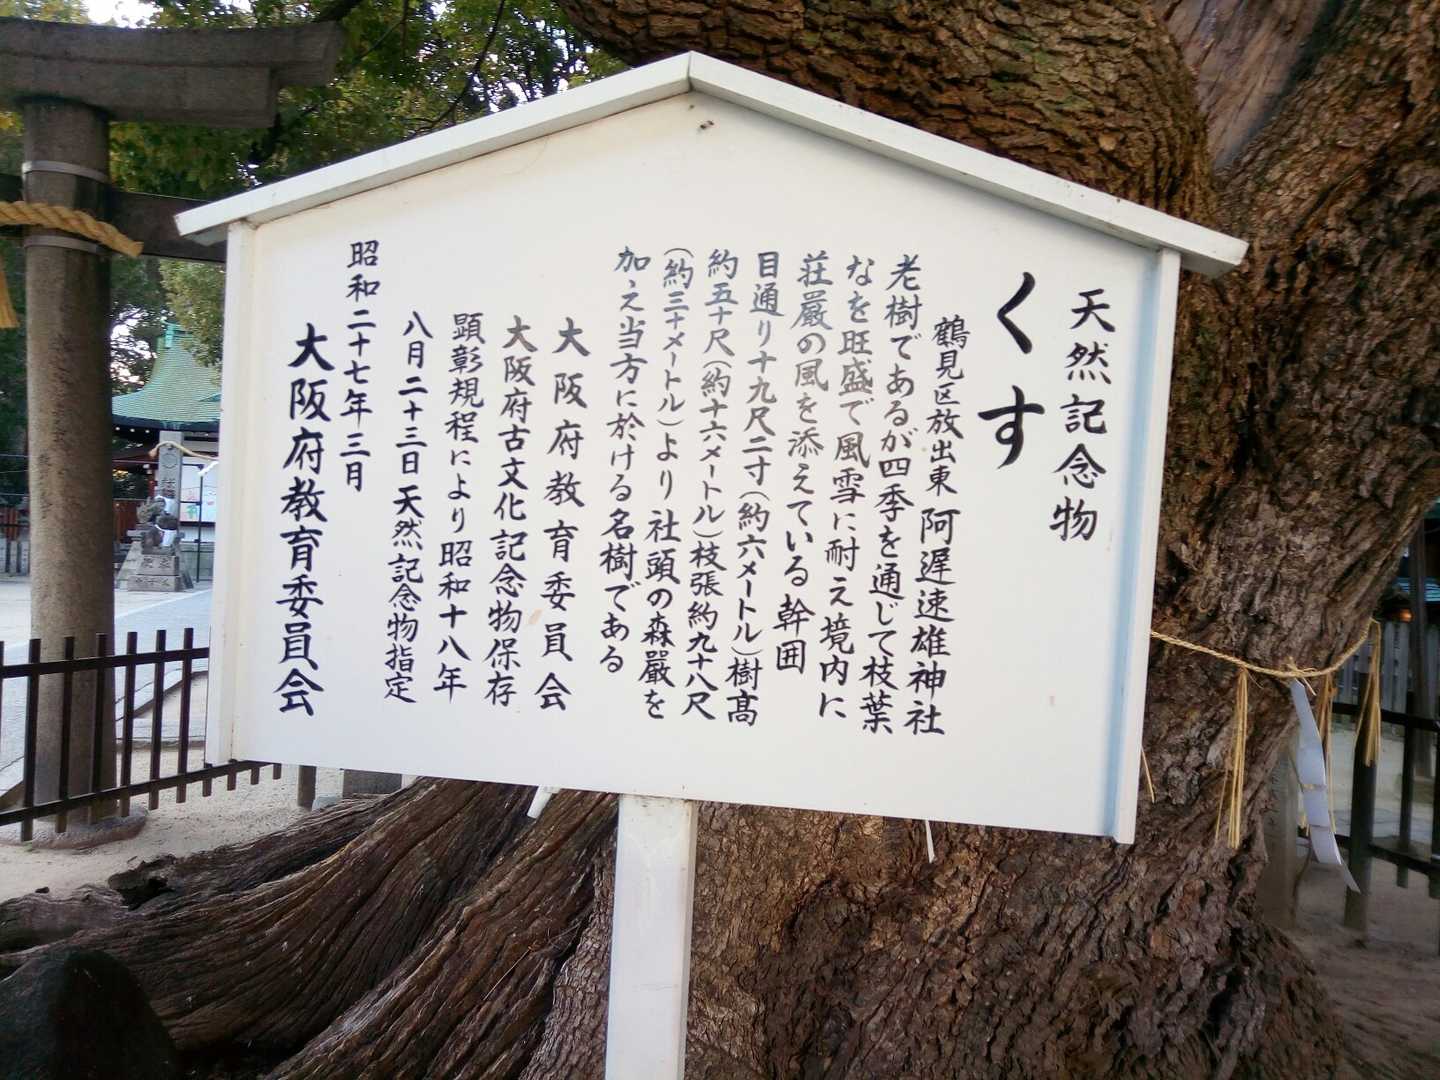 天然記念物
くす
鶴見区放出東 阿遅速雄神社
老樹であるが四季を通じて枝葉
なを旺盛で風雪に耐え境内に
荘厳の風を添えている幹囲
目通り十九尺二寸(約六メートル)樹高
約五十尺(約十六メートル)枝張約九十八尺
(約三十メートル)より社頭の森厳を
加え当方に於ける名樹である
大阪府教育委員会
大阪府古文化記念物保存
顕彰規程により昭和十八年
八月二十三日天然記念物指定
昭和二十七年三月
大阪府教育委員会